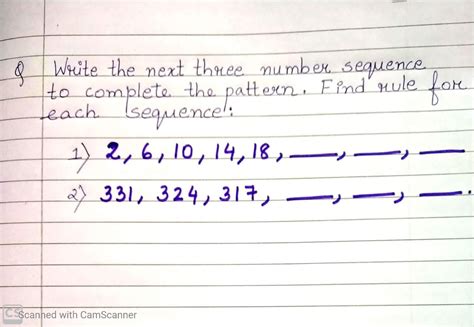 Q Write the next three number sequence
to complete the pattern. Find rule for
each sequence:
1) 2, 6, 10, 14, 18, __, __, __
2) 331, 324, 317, __, __, __.
CS Scanned with CamScanner